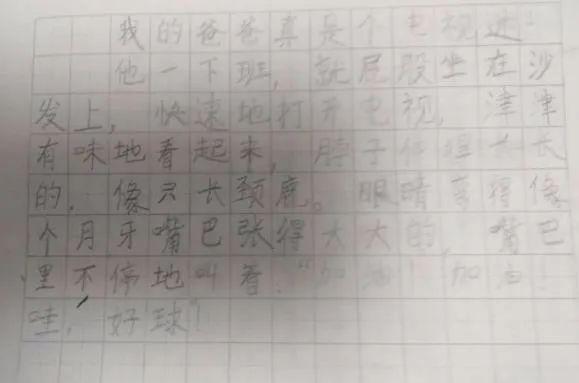 我的爸爸真是个电视迷！
他一下班，就屁股坐在沙
发上，快速地打开电视，津津
有味地看起来，脖子伸得长长
的，像只长颈鹿。眼睛得像
个月牙嘴巴张得大大的，嘴巴
里不停地叫着：“加油！加油！
哇，好球！”